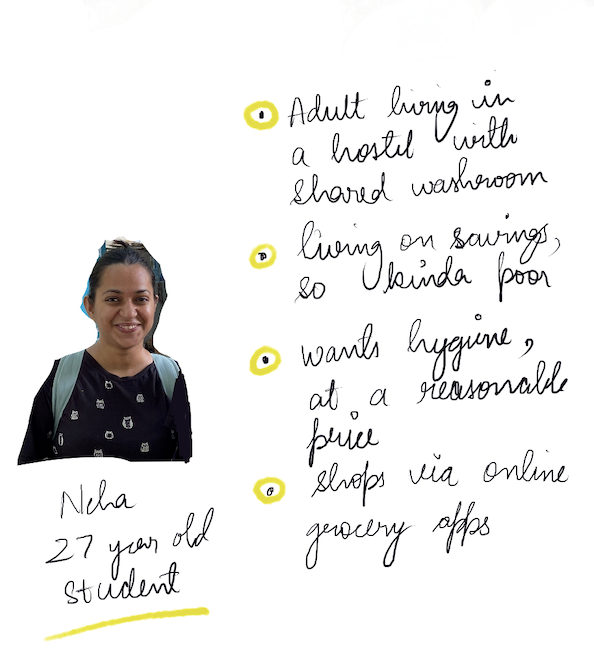 Adult living in
a hostel with
shared washroom
living on savings,
so kinda poor
wants hygine,
at a reasonable
price
shops via online
grocery apps
Neha
27 year old
student